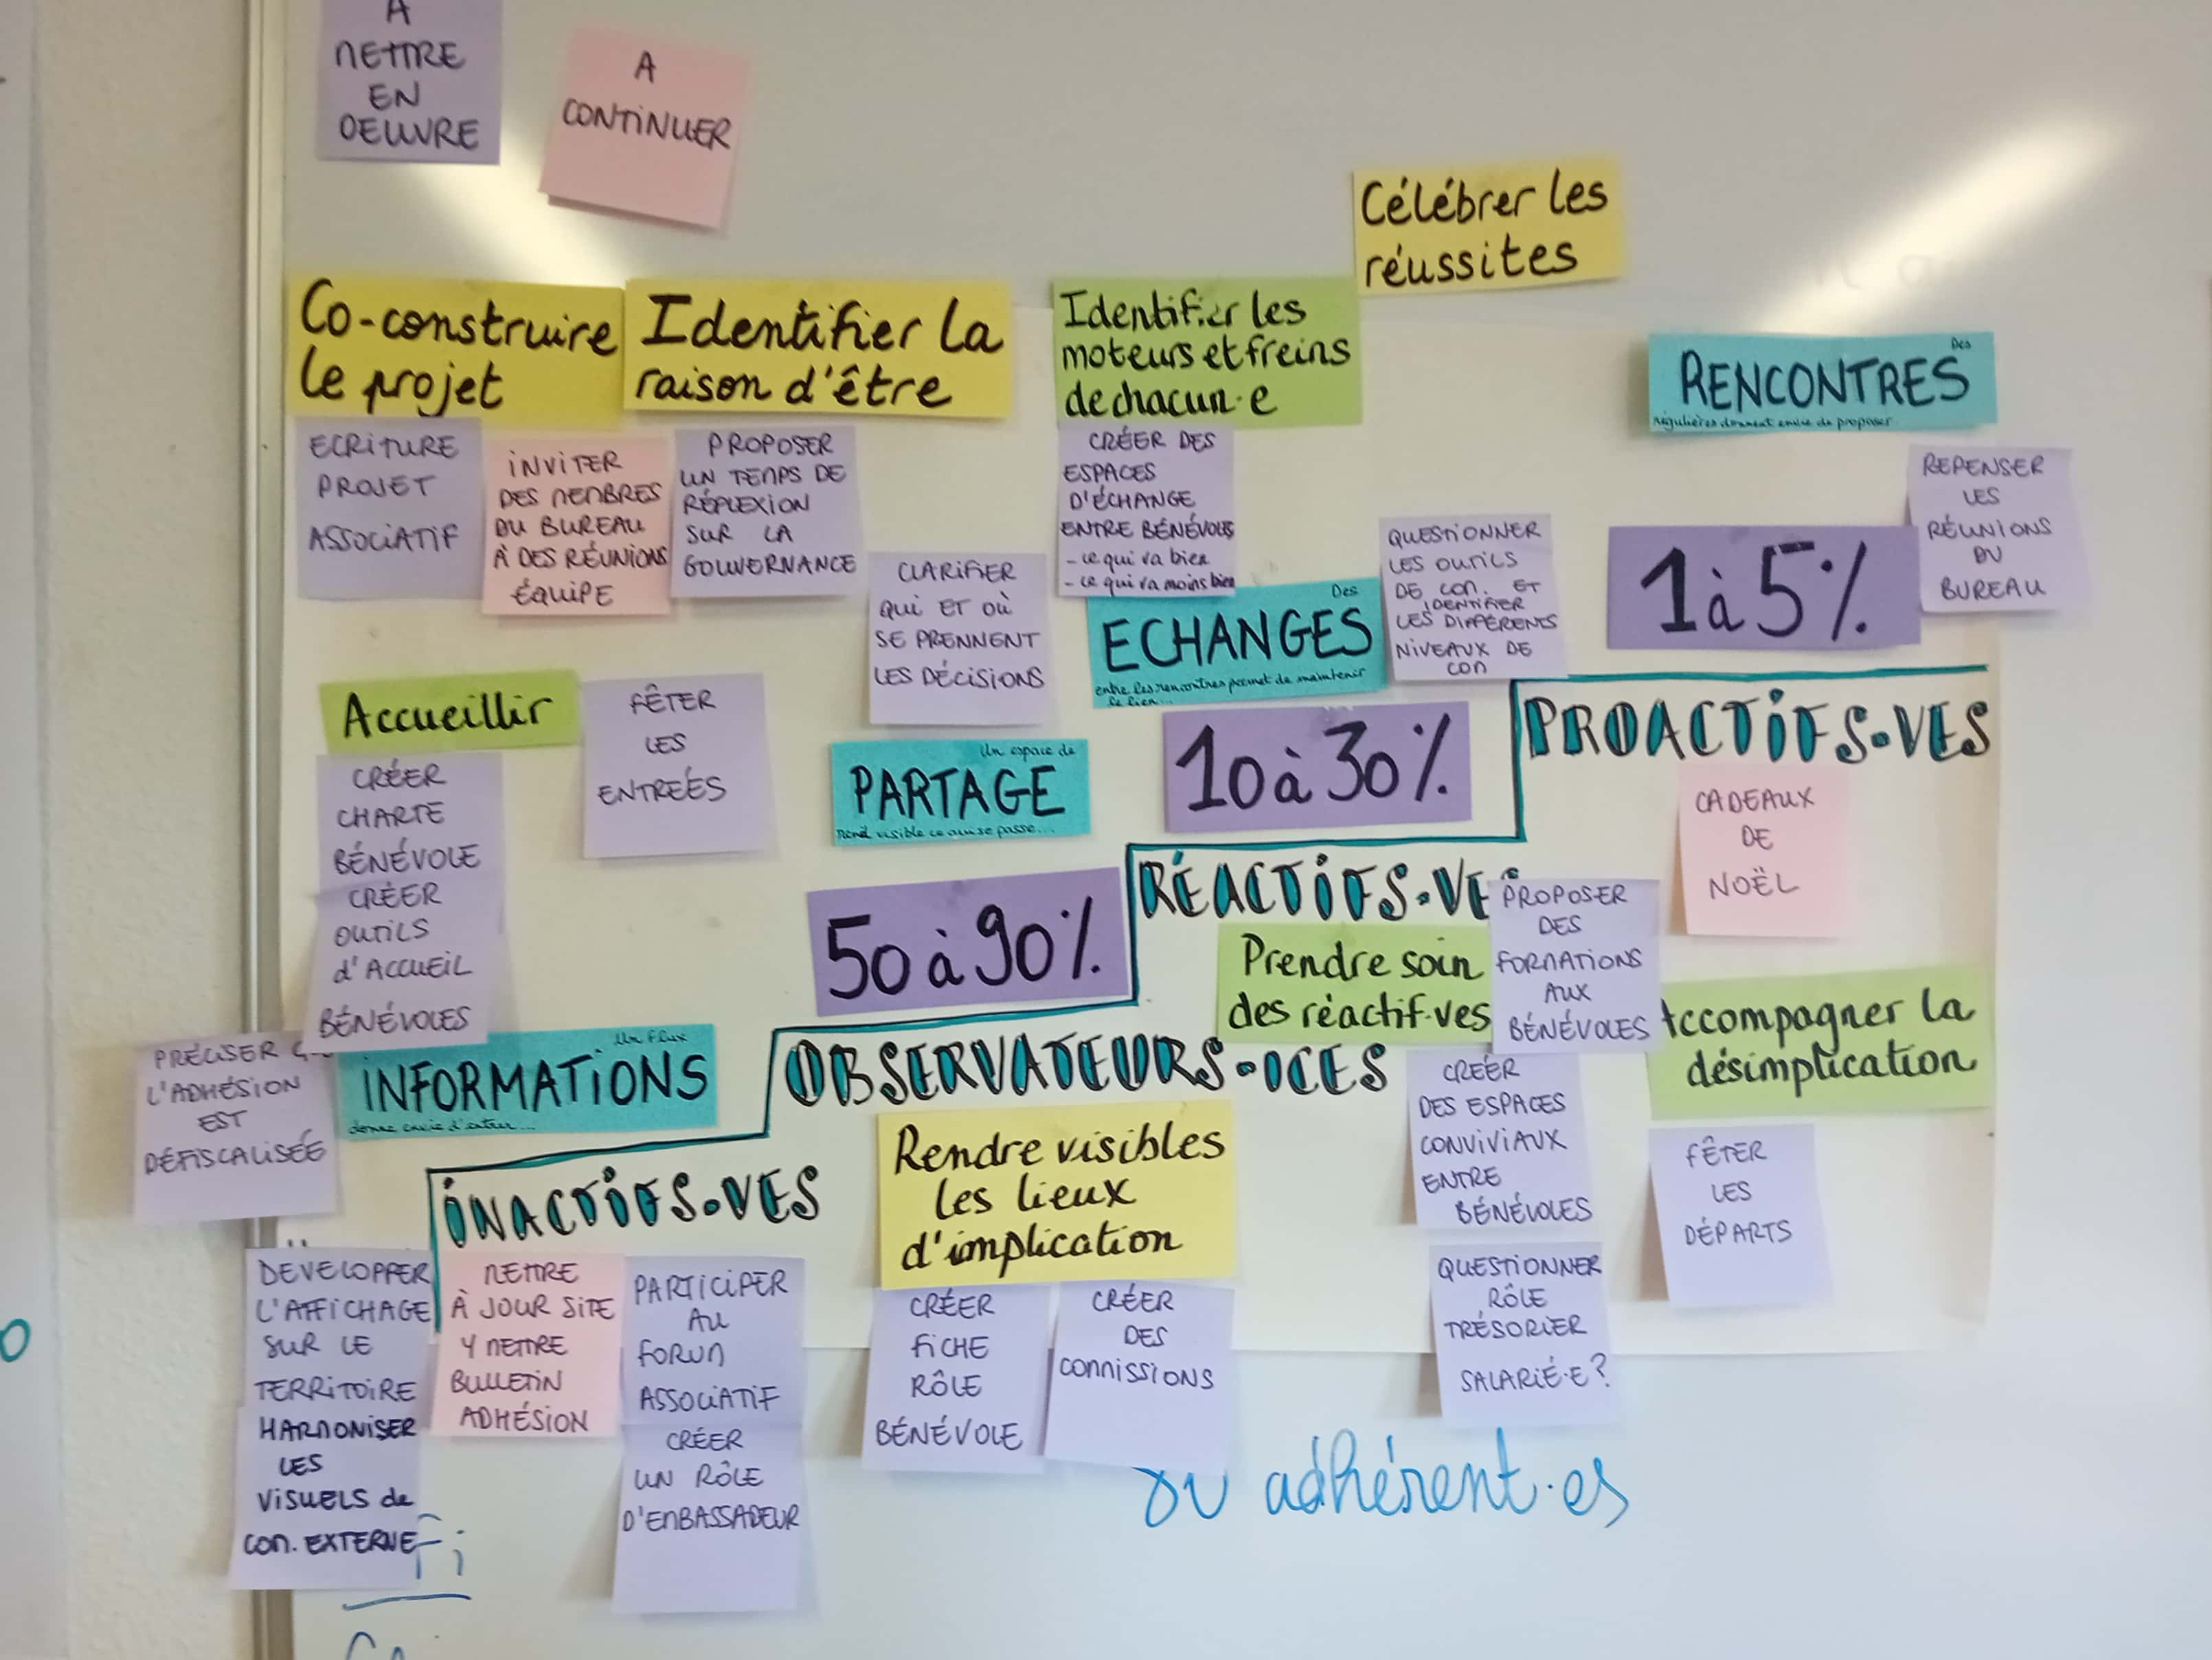 A
METTRE
EN
OEUVRE
A
CONTINUER
Célébrer les
réussites
Co-construire
le projet
Identifier la
raison d'être
Identifier les
moteurs et freins
de chacun·e
Des
RENCONTRES
régulières donnent envie de proposer
ECRITURE
PROJET
ASSOCIATIF
INVITER
DES MEMBRES
DU BUREAU
À DES RÉUNIONS
ÉQUIPE
PROPOSER
UN TEMPS DE
RÉFLEXION
SUR LA
GOUVERNANCE
CLARIFIER
QUI ET OÙ
SE PRENNENT
LES DÉCISIONS
CRÉER DES
ESPACES
D'ÉCHANGE
ENTRE BÉNÉVOLES
- ce qui va bien
- ce qui va moins bien
Des
ECHANGES
entre les rencontres permet de maintenir
le lien...
QUESTIONNER
LES OUTILS
DE COM. ET
IDENTIFIER
LES DIFFÉRENTS
NIVEAUX DE
COM
1 à 5%
REPENSER
LES
RÉUNIONS
DU
BUREAU
Accueillir
FÊTER
LES
ENTRÉES
CRÉER
CHARTE
BÉNÉVOLE
CRÉER
OUTILS
d'ACCUEIL
BÉNÉVOLES
Un espace de
PARTAGE
rend visible ce qui se passe...
10 à 30%
PROACTIFS·VES
CADEAUX
DE
NOËL
50 à 90%
RÉACTIFS·VE
Prendre soin
des réactif·ves
PROPOSER
DES
FORMATIONS
AUX
BÉNÉVOLES
Accompagner la
désimplication
FÊTER
LES
DÉPARTS
CRÉER
DES ESPACES
CONVIVIAUX
ENTRE
BÉNÉVOLES
QUESTIONNER
RÔLE
TRÉSORIER
SALARIÉ·E?
PRÉCISER
L'ADHÉSION
EST
DÉFISCALISÉE
Un flux
INFORMATIONS
donne envie d'entrer...
OBSERVATEURS·ICES
Rendre visibles
les lieux
d'implication
CRÉER
FICHE
RÔLE
BÉNÉVOLE
CRÉER
DES
COMMISSIONS
INACTIFS·VES
DEVELOPPER
L'AFFICHAGE
SUR LE
TERRITOIRE
HARMONISER
LES
VISUELS de
COM. EXTERNE
METTRE
À JOUR SITE
Y METTRE
BULLETIN
ADHÉSION
PARTICIPER
AU
FORUM
ASSOCIATIF
CRÉER
UN RÔLE
D'EMBASSADEUR
ou adhérent·es